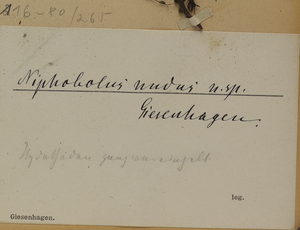 116-80/265
Niphobolus nudus n.sp.
Giesenhagen.
leg.
Giesenhagen.